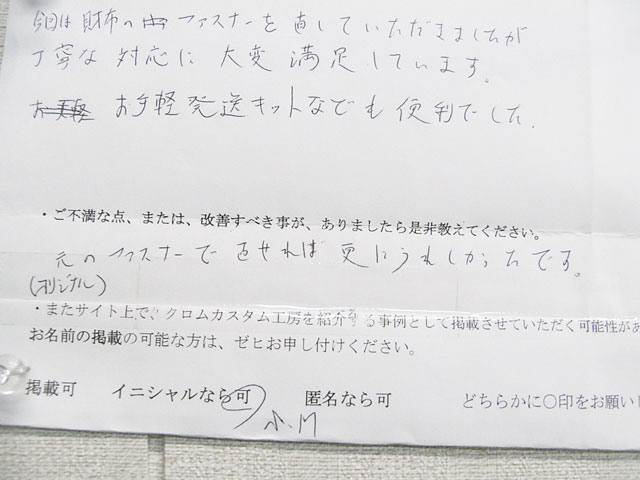 今回は財布の ファスナーを直していただきましたが
丁寧な対応に大変満足しています。
お手軽発送キットなども便利でした。
・ご不満な点、または、改善すべき事が、ありましたら是非教えてください。
元のファスナーで直せれば更にうれしかったです。
(オリジナル)
・またサイト上で、クロムカスタム工房を紹介する事例として掲載させていただく可能性があ
お名前の掲載の可能な方は、ゼヒお申し付けください。
掲載可 イニシャルなら可 匿名なら可 どちらかに〇印をお願い
小川